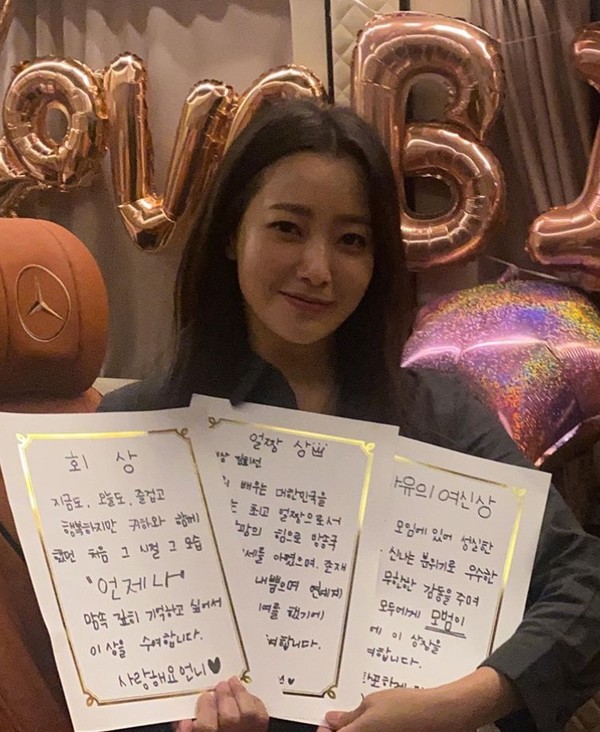 OVE
B
회 상
지금도, 오늘도, 즐겁고
행복하지만 귀하와 함께
했던 처음 그 시절 그 모습
"언제나"
맘속 깊히 기억하고 싶어서
이 상을 수여합니다.
사랑해요언니♥
얼짱 상
배우는 대한민국을
최고 얼짱으로서
힘으로 방송국
내뿜으며 연예계
했기에
여합니다.
유의 여신상
모임에 있어 성실한
신나는 분위기로 우수한
무한한 감동을 주며
모두에게 모범이
에 이 상장을
여합니다.